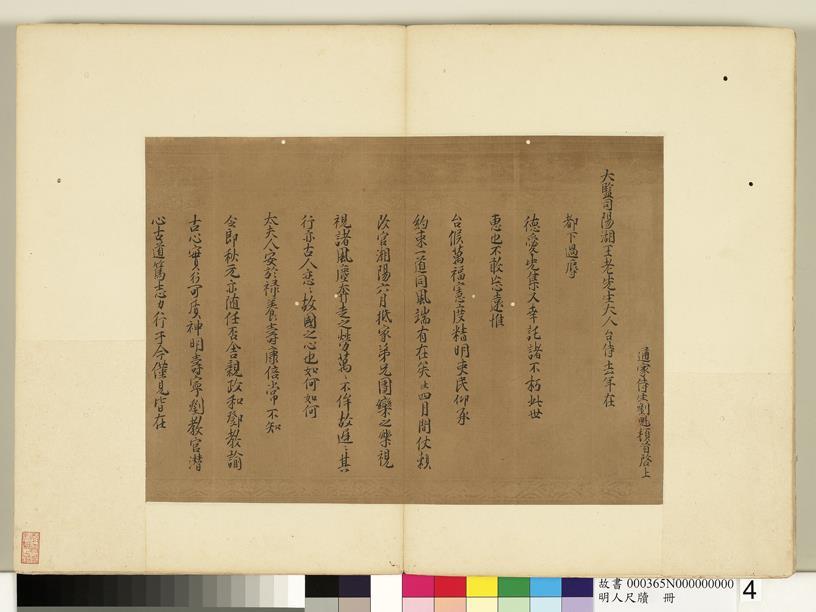 通家侍生劉魁頓首啓上
大監司陽湖王老先生大人台侍去年在
都下過辱
德愛先集又幸託諸不朽此世
惠也不敢忘遠惟
台候萬福憲度精明吏民仰承
約束一道同風端有在矣四月間仗賴
改官湘陽六月抵家弟兄團欒之樂視
視諸風塵奔走之勞萬不侔故遲遲其
行亦古人戀戀故國之心也如何如何
太夫人安於祿養壽康倍常不知
令郎秋元亦隨任否舍親政和鄧教諭
古心實行可質神明壽寧劉教官潛
心古道篤志力行于今僅見皆在
故書 000365N000000000
明人尺牘 冊
4